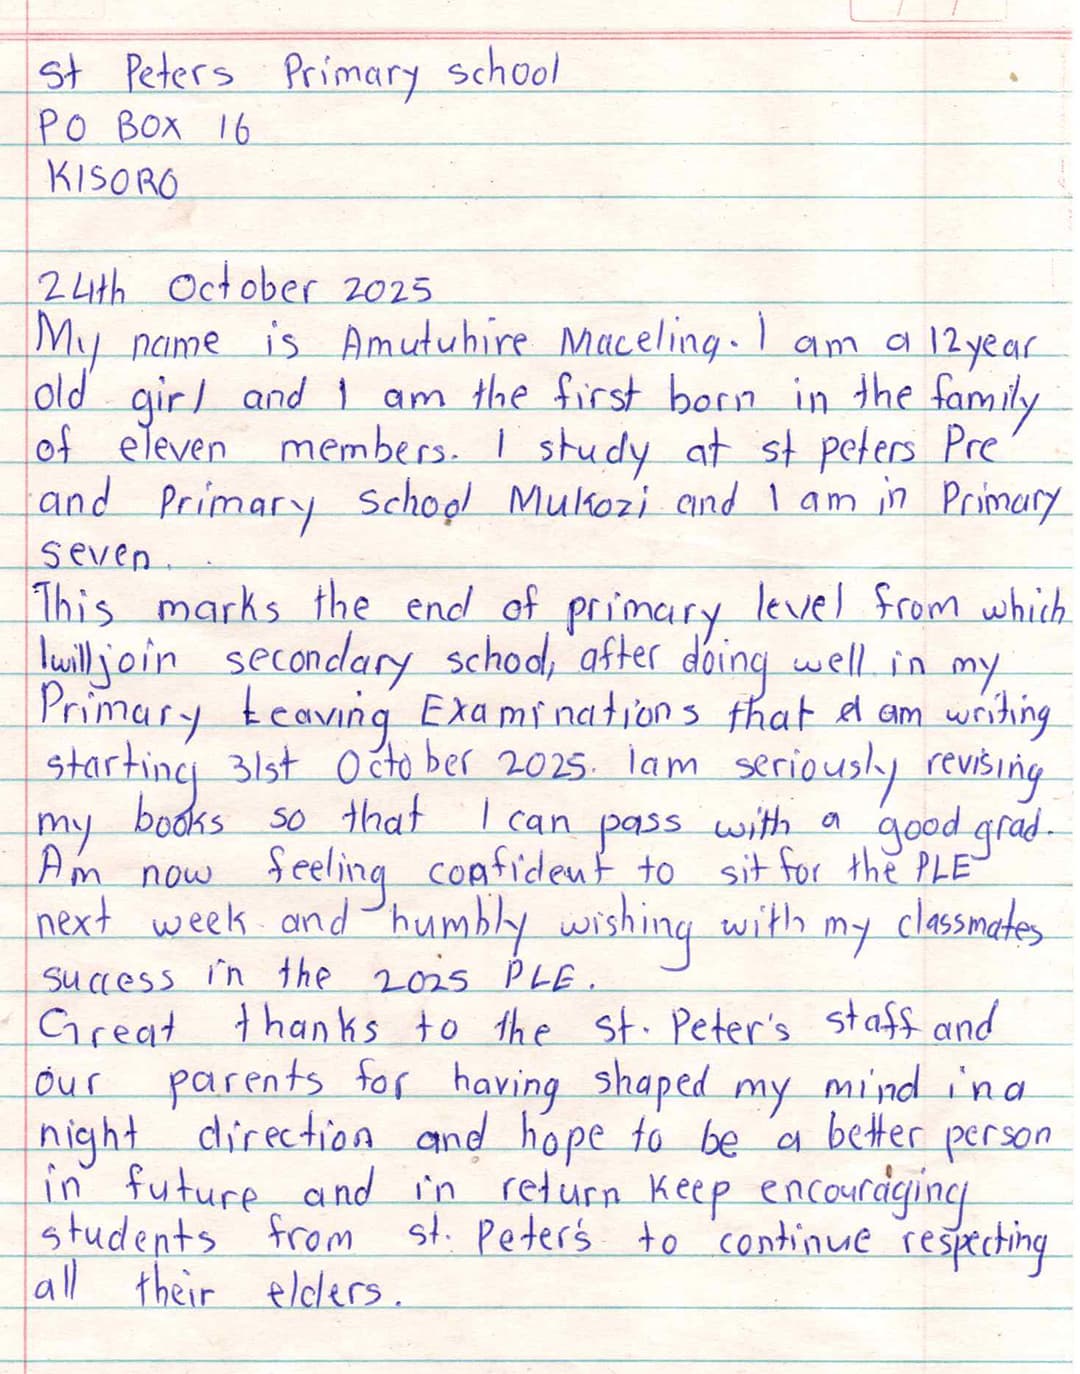 St Peters Primary school
PO BOX 16
KISORO
24th October 2025
My name is Amutuhire Maceling. I am a 12 year
old girl and I am the first born in the family
of eleven members. I study at st peters Pre
and Primary School Mukozi and I am in Primary
seven.
This marks the end of primary level from which
I will join secondary school, after doing well in my
Primary Leaving Examinations that I am writing
starting 31st October 2025. Iam seriously revising
my books so that I can pass with a good grad.
Am now feeling confident to sit for the PLE
next week and humbly wishing with my classmates
success in the 2025 PLE.
Great thanks to the st. Peter's staff and
our parents for having shaped my mind in a
night direction and hope to be a better person
in future and in return keep encouraging
students from st. Peter's to continue respecting
all their elders.